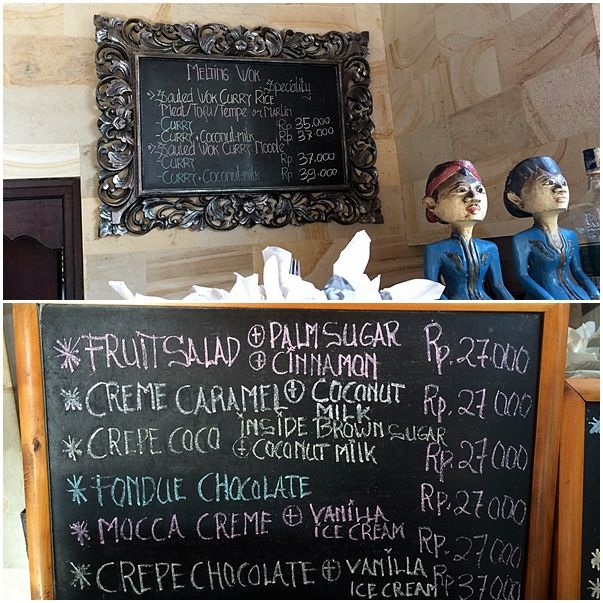 MELTING WOK
Speciality
*) Sauted WOK CURRY RICE
MEAT/TOFU/TEMPE or MARLIN
-CURRY Rp 35.000
-CURRY+COCONUT-MILK Rp 37.000
*) Sauted WOK CURRY NOODLE
-CURRY Rp. 37.000
-CURRY+COCONUT-MILK Rp. 39.000
* FRUIT SALAD + PALM SUGAR
+ CINNAMON Rp. 27.000
* CREME CARAMEL + COCONUT
MILK Rp. 27.000
* CREPE COCO INSIDE BROWN SUGAR
+ COCONUT MILK Rp. 27.000
* FONDUE CHOCOLATE Rp. 27.000
* MOCCA CREME + VANILLA
ICE CREAM Rp. 27.000
* CREPE CHOCOLATE + VANILLA
ICE CREAM Rp. 37.000